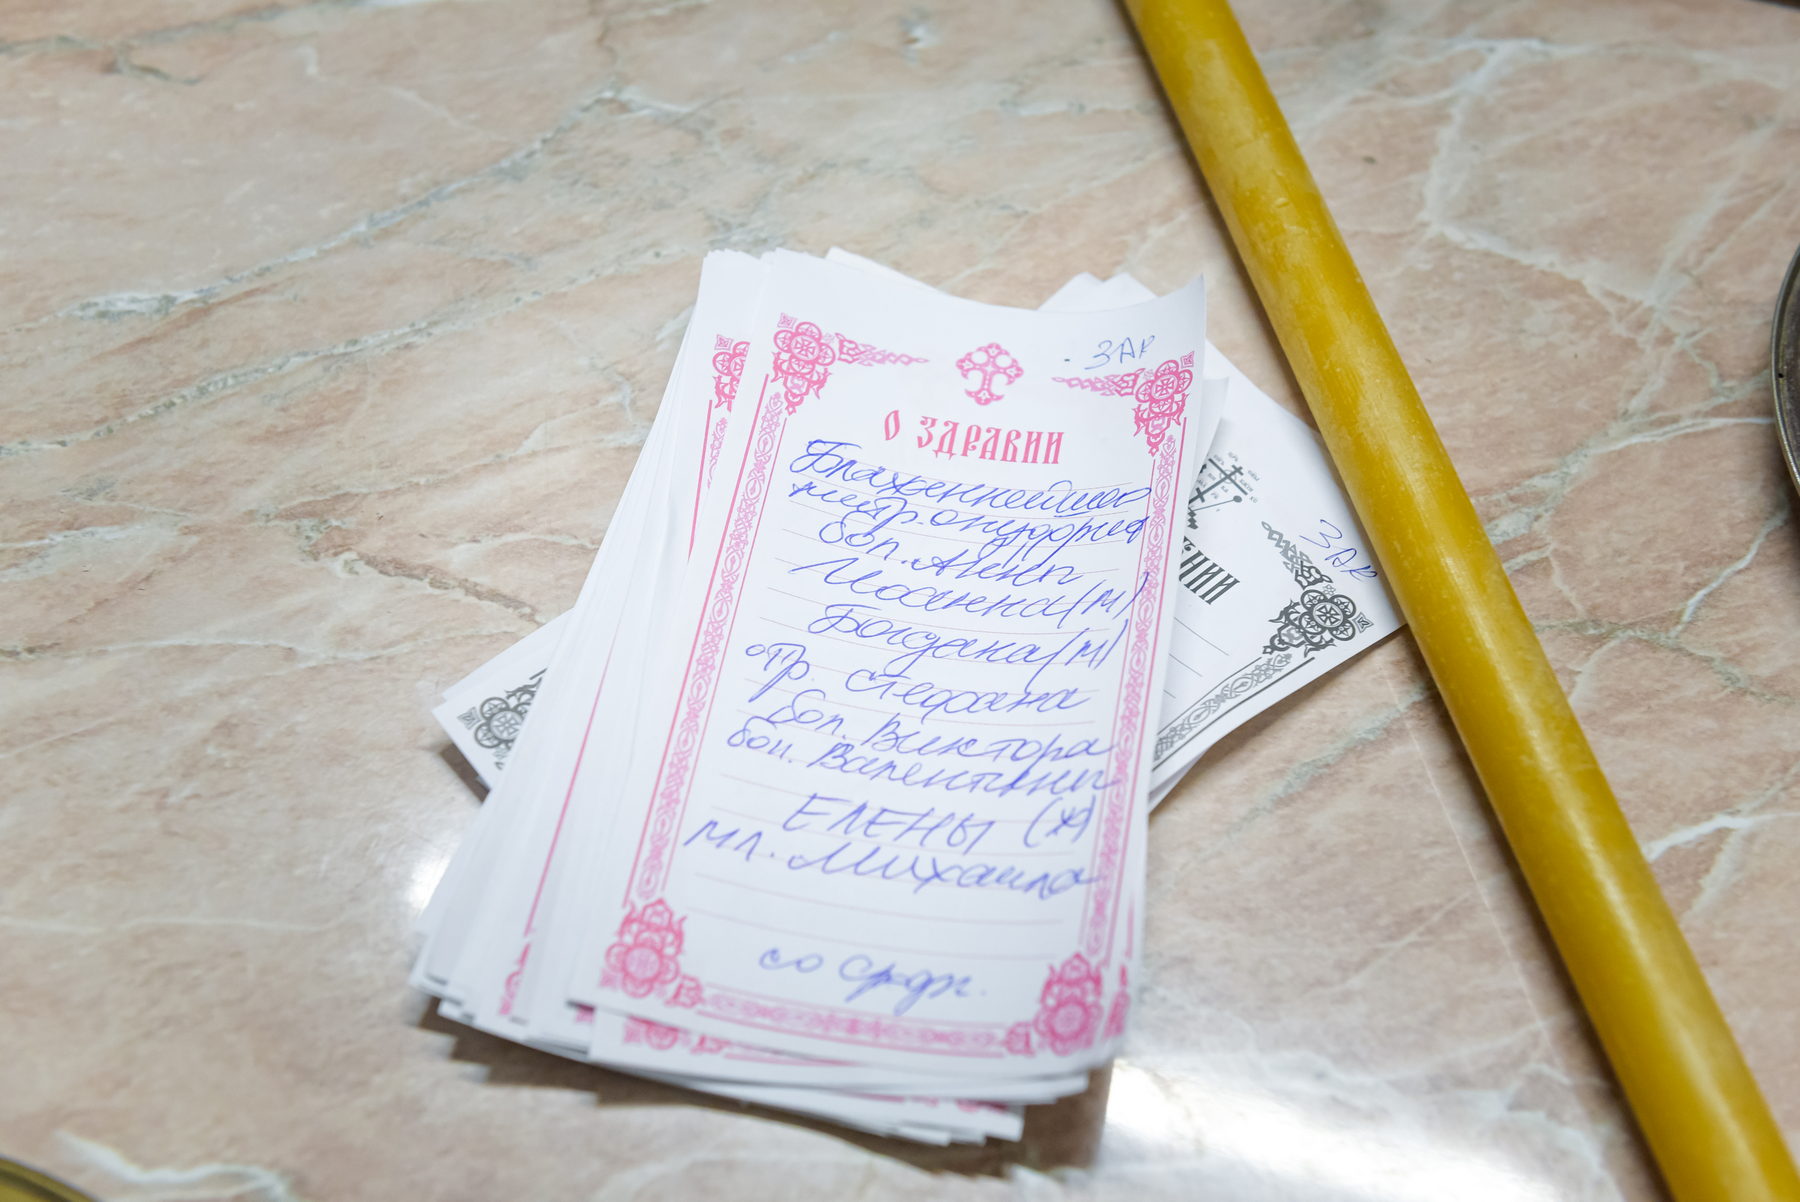 ЗАК
О ЗДРАВИИ
Блаженнейшего
митр. Онуфрия
бол. Анны
Иоанна (м)
Богдана (м)
отр. Стефана
бол. Виктора
бол. Валентины
ЕЛЕНЫ (ж)
мл. Михаила
со сродн.
ЗАК